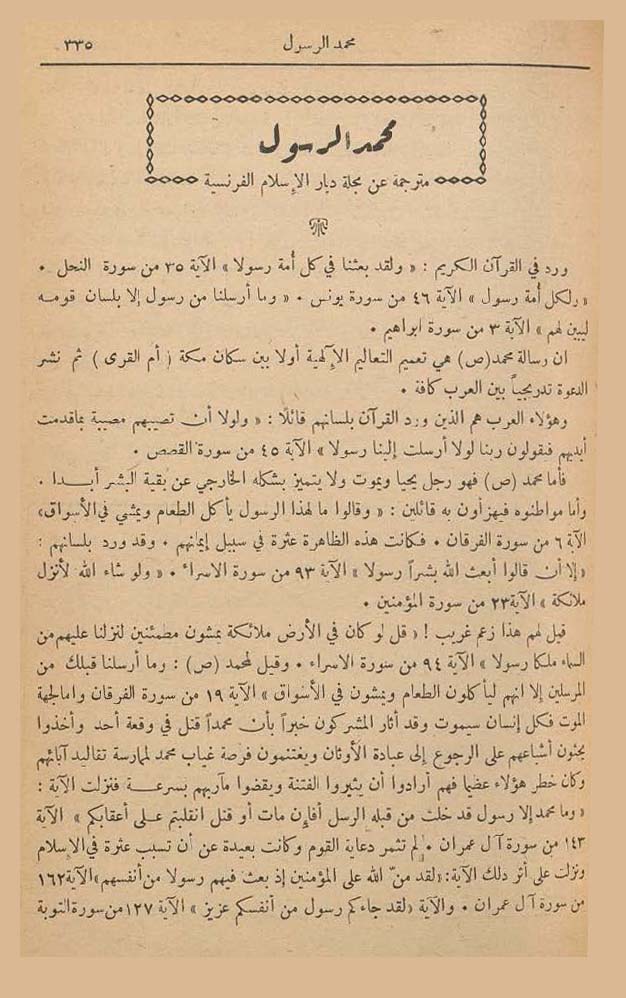 محمد الرسول ٣٣٥
محمد الرسول
مترجمة عن مجلة ديار الإسلام الفرنسية
ورد في القرآن الكريم : « ولقد بعثنا في كل أمة رسولا » الآية ٣٥ من سورة النحل .
« ولكل أمة رسول » الآية ٤٦ من سورة يونس . « وما أرسلنا من رسول إلا بلسان قومه
ليبين لهم » الآية ٣ من سورة ابراهيم .
ان رسالة محمد (ص) هي تعميم التعاليم الإلهية أولا بين سكان مكة ( أم القرى ) ثم نشر
الدعوة تدريجياً بين العرب كافة .
وهؤلاء العرب هم الذين ورد القرآن بلسانهم قائلا : « ولولا أن تصيبهم مصيبة بما قدمت
أيديهم فيقولون ربنا لولا أرسلت إلينا رسولا » الآية ٤٥ من سورة القصص .
فأما محمد (ص) فهو رجل يحيا ويموت ولا يتميز بشكله الخارجي عن بقية البشر أبدا .
وأما مواطنوه فيهزأون به قائلين : « وقالوا ما لهذا الرسول يأكل الطعام ويمشي في الأسواق »
الآية ٦ من سورة الفرقان . فكانت هذه الظاهرة عثرة في سبيل إيمانهم . وقد ورد بلسانهم :
« إلا أن قالوا أبعث الله بشراً رسولا » الآية ٩٣ من سورة الاسراء . « ولو شاء الله لأنزل
ملائكة » الآية ٢٣ من سورة المؤمنين .
قيل لهم هذا زعم غريب ! « قل لو كان في الأرض ملائكة يمشون مطمئنين لنزلنا عليهم من
السماء ملكا رسولا » الآية ٩٤ من سورة الاسراء . وقيل لمحمد (ص) : وما أرسلنا قبلك من
المرسلين إلا انهم ليأكلون الطعام ويمشون في الأسواق » الآية ١٩ من سورة الفرقان واما لجهة
الموت فكل إنسان سيموت وقد أثار المشركون خبراً بأن محمداً قتل في وقعة أحد وأخذوا
يحثون أشياعهم على الرجوع إلى عبادة الأوثان ويغتنمون فرصة غياب محمد لممارسة تقاليد آبائهم
وكان خطر هؤلاء عظيما فهم أرادوا أن يثيروا الفتنة ويقضوا مآربهم بسرعة فنزلت الآية :
« وما محمد إلا رسول قد خلت من قبله الرسل أفإن مات أو قتل انقلبتم على أعقابكم » الآية
١٤٣ من سورة آل عمران . لم تثمر دعاية القوم وكانت بعيدة عن أن تسبب عثرة في الإسلام
ونزلت على أثر ذلك الآية : « لقد منّ الله على المؤمنين إذ بعث فيهم رسولا من أنفسهم » الآية ١٦٢
من سورة آل عمران . والآية « لقد جاءكم رسول من أنفسكم عزيز » الآية ١٢٧ من سورة التوبة